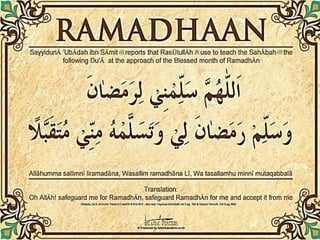 RAMADHAAN
Sayyidunā 'Ubādah ibn Sāmit reports that Rasūlullāh use to teach the Sahābah the
following Du'ā at the approach of the Blessed month of Ramadhān
اَللّٰهُمَّ سَلِّمْنِيْ لِرَمَضَانَ
وَسَلِّمْ رَمَضَانَ لِيْ وَتَسَلَّمْهُ مِنِّيْ مُتَقَبَّلًا
Allāhumma sallimnī liramadāna, Wasallim ramadhāna Lī, Wa tasallamhu minnī mutaqabbalā
Translation:
Oh Allāh! safeguard me for Ramadhān, safeguard Ramadhān for me and accept it from me